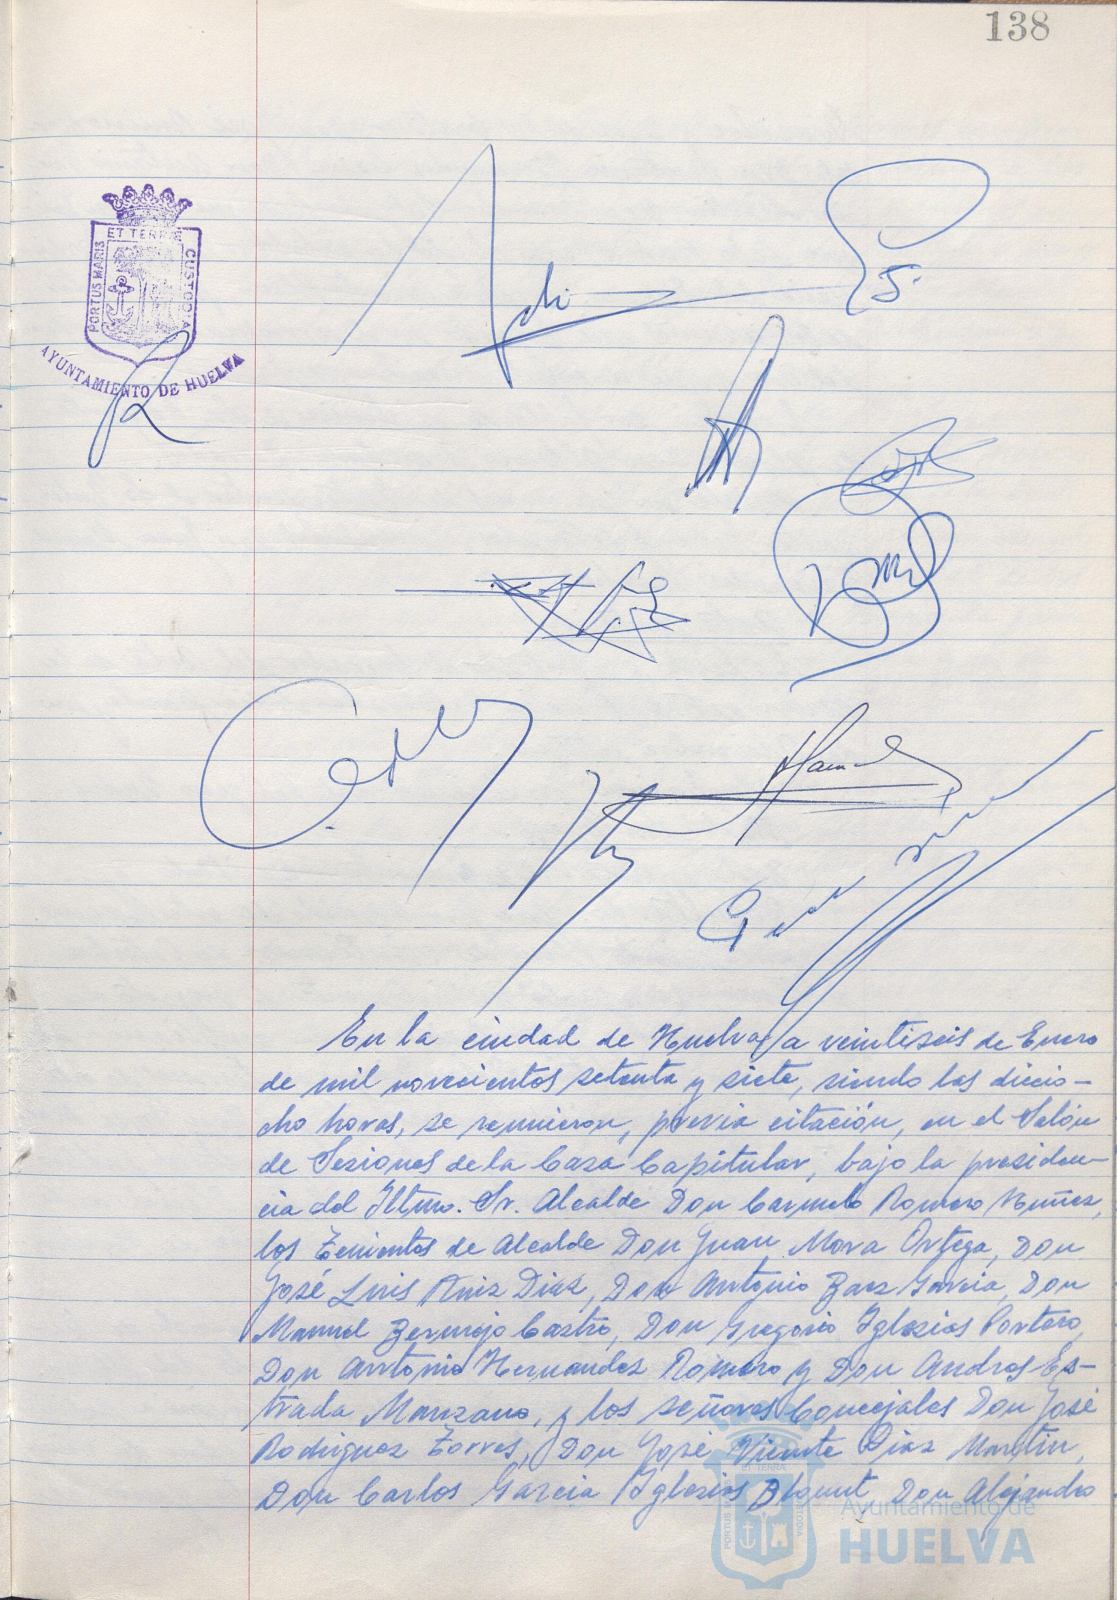 138
ET TERRÆ
PORTUS MARIS
CUSTODIA
AYUNTAMIENTO DE HUELVA
En la ciudad de Huelva, a veintiseis de Enero
de mil novecientos setenta y siete, siendo las diecio-
cho horas, se reunieron, previa citación, en el Salón
de Sesiones de la Casa Capitular, bajo la presiden-
cia del Iltmo. Sr. Alcalde Don Carmelo Romero Núñez,
los Tenientes de Alcalde Don Juan Mora Ortega, Don
José Luis Ruiz Diaz, Don Antonio Baez Garcia, Don
Manuel Bermejo Castro, Don Gregorio Iglesias Portero,
Don Antonio Hernandez Romero y Don Andres Es-
trada Manzano, y los señores Concejales Don José
Rodriguez Torres, Don José Vicente Diaz Martin,
Don Carlos Garcia Iglesias Don Alejandro
ET TERRA
PORTUS MARIS
CUSTODIA
Ayuntamiento de
HUELVA